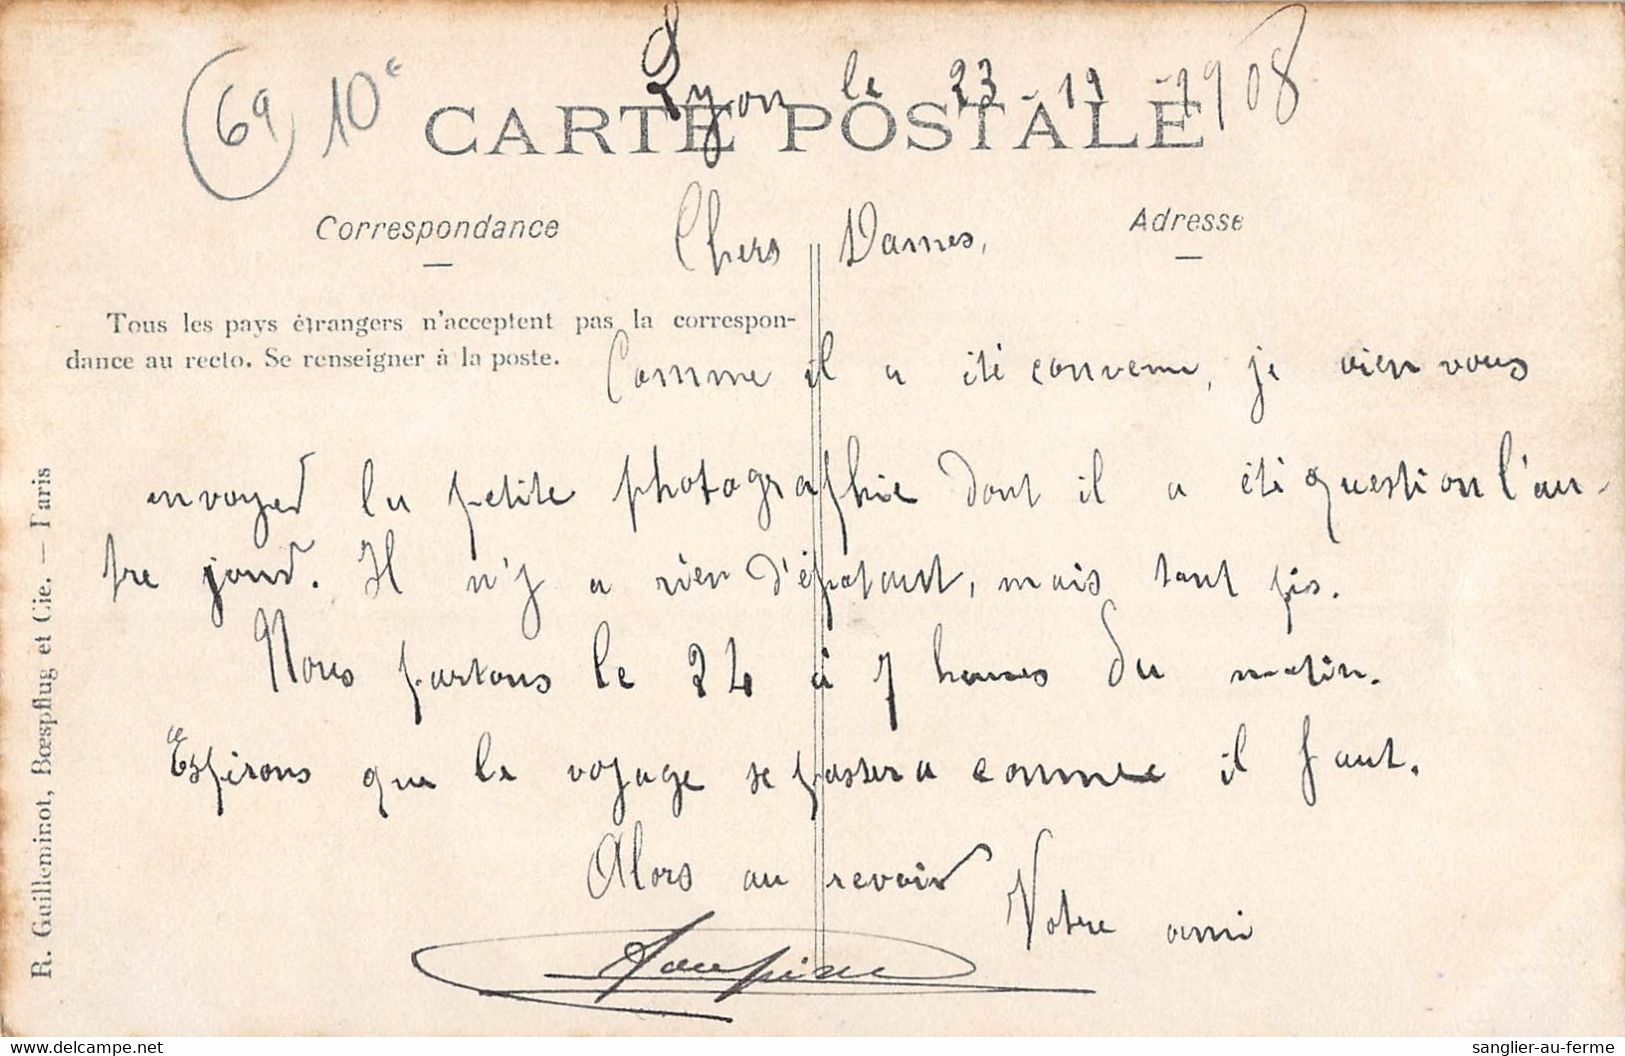 69 10€
Lyon le 23-12-1908
CARTE POSTALE
Correspondance
Adresse
Chers Dames,
Tous les pays étrangers n'acceptent pas la correspon-
dance au recto. Se renseigner à la poste.
Comme il a été convenu, je vien vous
envoyer la petite photographie dont il a été question l'au-
tre jour. Il n'y a rien d'épatant, mais tant pis.
Nous partons le 24 à 7 heures du matin.
Espérons que le voyage se passera comme il faut.
Alors au revoir
Votre ami
R. Guilleminot, Bœspflug et Cie. — Paris
delcampe.net
sanglier-au-ferme